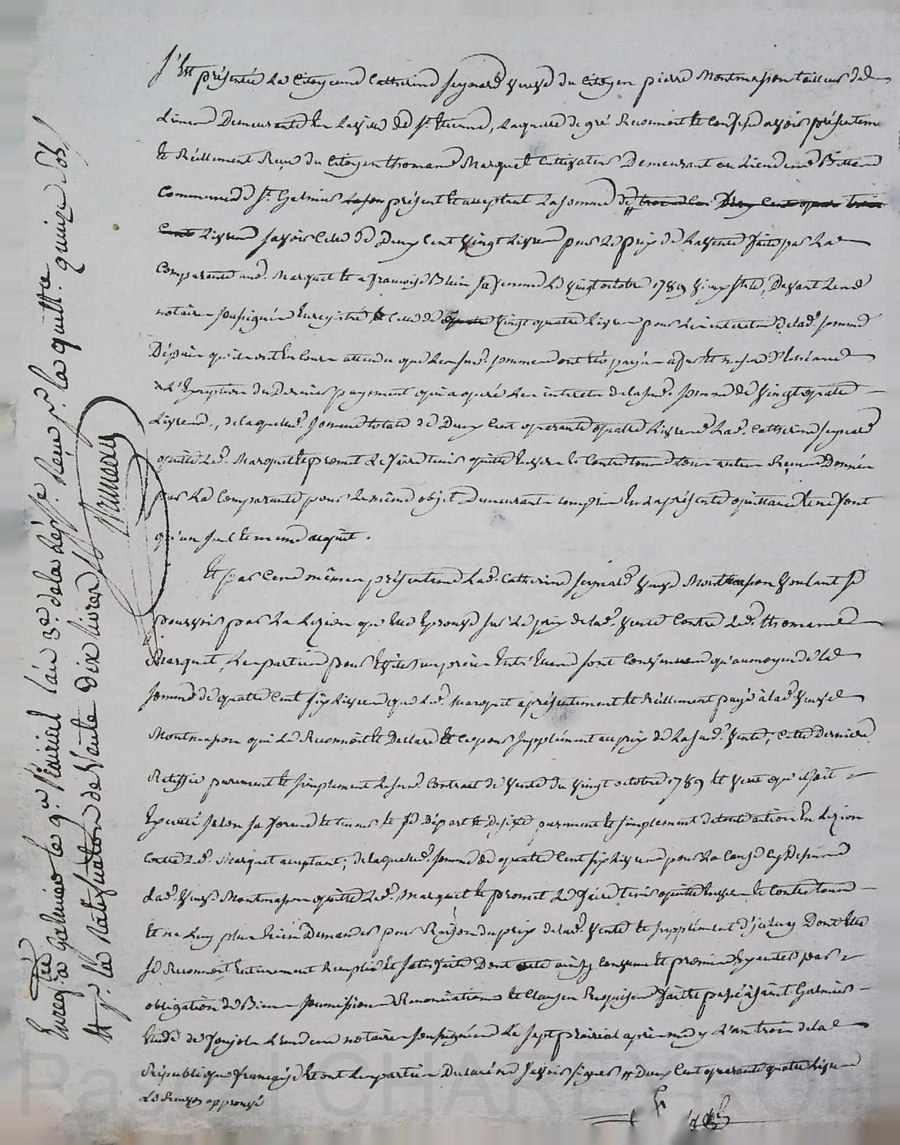 S'est présentée la Citoyenne Catherine seynard veuve du Citoyen pierre Montmasson tailleur de
Demeurante en la ville de St. Etienne, laquelle de gré Reconnoit et Confesse avoir présentem
et Réellement Reçu du Citoyen thomas Marquet Cultivateur Demeurant au lieu de
Commune de St. Galmier présent et acceptant la somme de
livres savoir Celle de Deux Cent Vingt livres pour le prix de la vente faite par la
Comparante aud. Marquet et a françoise sa femme le vingt octobre 1789 vieux stile, Devant le no
notaire soussigné Enregistré et Celle de vingt quatre livres pour les interets de lad. somme
Depuis attendu que les sud. sommes ont été payées
a l'Expiration du Dernier payement qui a opéré les interets de la sud. somme de vingt quatre
livres, de laquelle somme totale de Deux Cent quarante quatre livres lad. Catherine seynard
quitte led. Marquet et promet le faire tenir quitte Envers et Contre tous tout autre Reçu Donné
par la Comparante pour le même objet Demeurant Compris en la présente quittance et ne font
qu'un seul et meme acquit.
Et par Ces mêmes présentes lad. Catherine seynard veuve Montmasson voulant se
pourvoir par la lézion qu'elle Eprouve sur le prix de lad. vente Contre led. thomas
Marquet, les parties pour Eviter un procès Entr'Elles sont Convenues qu'au moyen de la
somme de quatre Cent six livres que led. Marquet a présentement et Réellement payé à lad. veuve
Montmasson qui le Reconnoit et Declare et Ce pour supplément au prix de la sud. vente, Cette Derniere
Ratiffie purement et simplement le sud. Contrat de vente du vingt octobre 1789 et veut qu'il soit
Executé selon sa forme et teneur et se Départ et desiste purement et simplement de toute action En lézion
Contre led. Marquet acceptant; de laquelle somme de quatre Cent six livres pour la Cause Cy dessus
lad. veuve Montmasson quitte led. Marquet et promet le faire tenir quitte Envers et Contre tous
et ne luy plus Rien Demander pour Raison du prix de lad. vente et supplément d'iceluy Dont Elle
se Reconnoit Entierement Remplie et satisfaite Dont acte ainsy Convenu et promis Executer par
obligation de Biens soumissions Renonciations et Clauses Requises fait et passé à saint Galmier
Etude de Ponjol l'un des notaires soussignés le sept prairial après midy l'an trois de la
République françoise et ont les parties Declaré ne savoir signer Deux Cent quarante quatre livres
approuvé
Enregistré à Galmier le 9 Prairial l'an 3e. de la Rép. Reçu pr. la quitt. quinze sols
et pr. la Ratification de Vente Dix livres